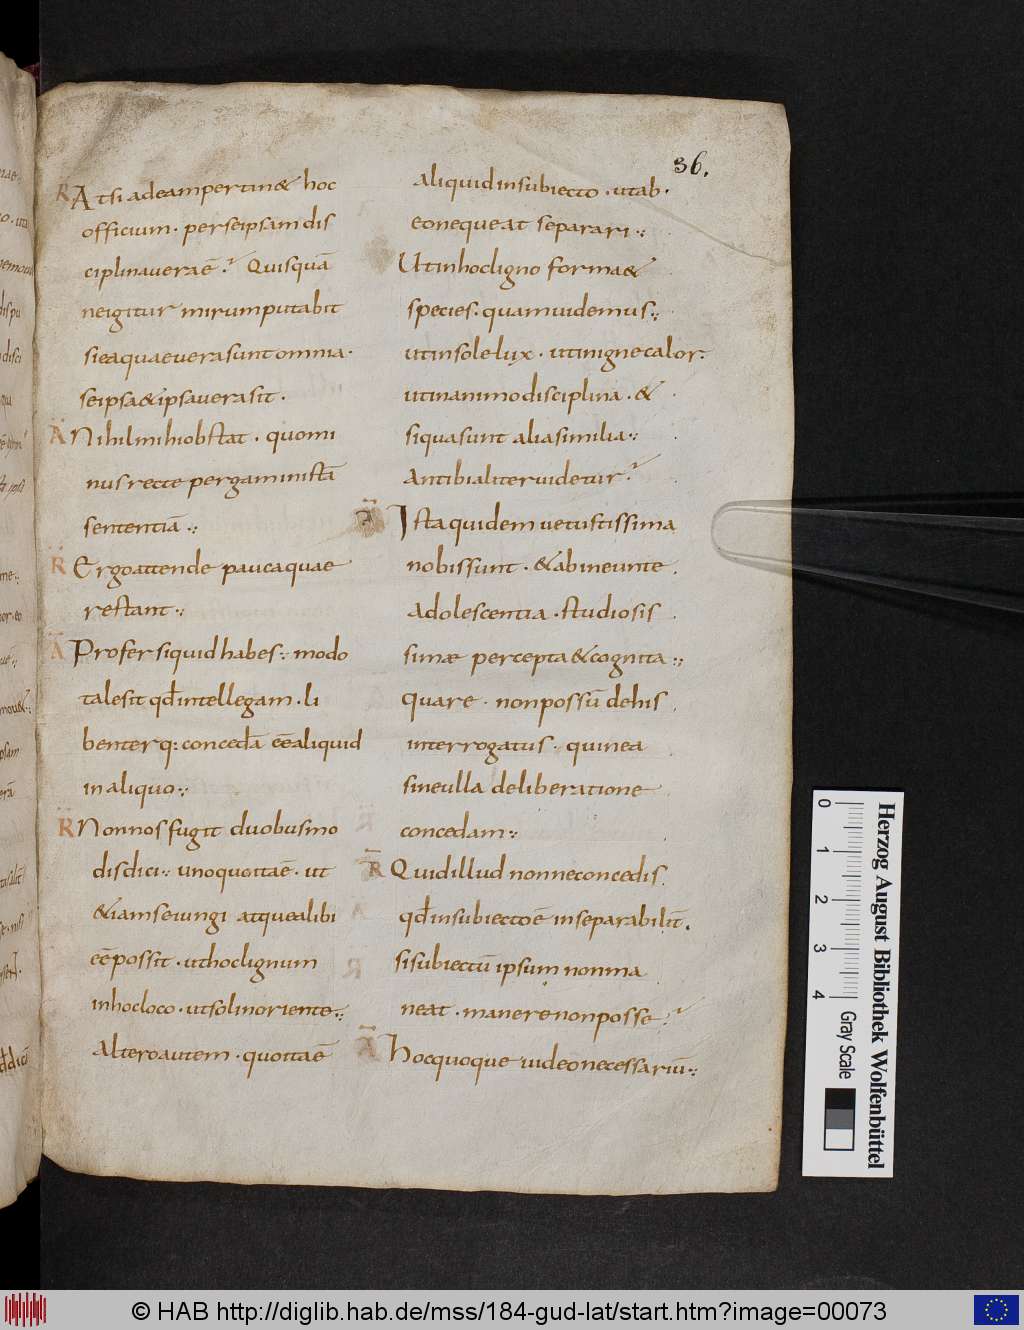 36.
R Atsi adeam pertin& hoc
officium · perseipsam dis
ciplina uerae᷉ ? Quisquā
neigitur mirum putabit
siea quae uera sunt omnia ·
seipsa & ipsa uera sit ·
A Nihil mihi obstat · quomi
nus recte pergam in istā
sententiā ·:
R Ergo attende pauca quae
restant ·:
A Profer siquid habes ·: modo
tale sit qđ intellegam · li
benter q: concedā eē aliquid
in aliquo ·:
R Non nos fugit duobus mo
dis dici ·: uno quo ita ē · ut
& iam seiungi atque alibi
eē possit · ut hoc lignum
in hoc loco · ut sol in oriente ·:
Altero autem · quo ita ē
aliquid in subiecto · ut ab ·
eo nequeat separari ·:
Ut in hoc ligno forma &
species · quam uidemus ·:
ut in sole lux · ut in igne calor ·
ut in animo disciplina · &
siqua sunt alia similia ·:
An tibi aliter uidetur ?
A Ista quidem uetustissima
nobis sunt · & ab ineunte
adolescentia · studiosis
simae percepta & cognita ·:
quare · non possū de his
interrogatus · quin ea
sine ulla deliberatione
concedam ·:
R Quid illud nonne concedis
qđ in subiecto ē inseparabilit̄ ·
si subiectū ipsum non ma
neat · manere non posse ?
A hoc quoque uideo necessariū ·:
Herzog August Bibliothek Wolfenbüttel
0 1 2 3 4 Gray Scale
© HAB http://diglib.hab.de/mss/184-gud-lat/start.htm?image=00073